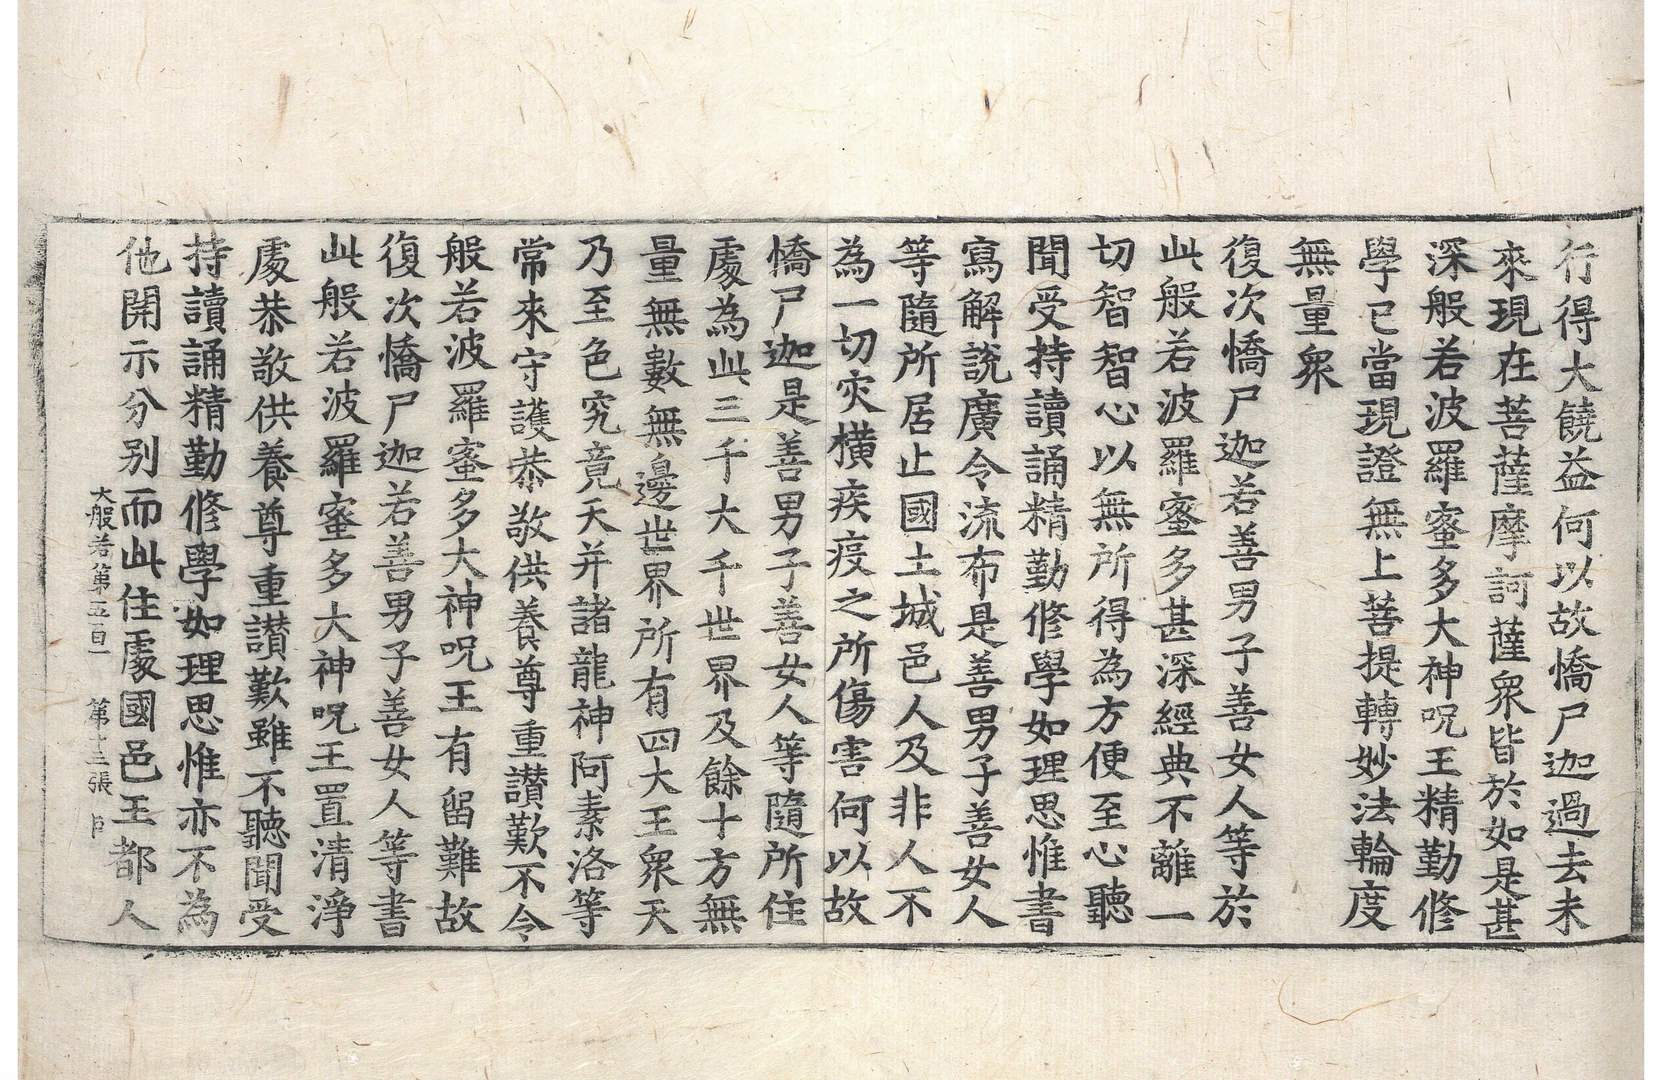 行得大饒益何以故憍尸迦過去未
來現在菩薩摩訶薩衆皆於如是甚
深般若波羅蜜多大神呪王精勤修
學已當現證無上菩提轉妙法輪度
無量衆
復次憍尸迦若善男子善女人等於
此般若波羅蜜多甚深經典不離一
切智智心以無所得為方便至心聽
聞受持讀誦精勤修學如理思惟書
寫解說廣令流布是善男子善女人
等隨所居止國土城邑人及非人不
為一切灾橫疾疫之所傷害何以故
憍尸迦是善男子善女人等隨所住
處為此三千大千世界及餘十方無
量無數無邊世界所有四大王衆天
乃至色究竟天并諸龍神阿素洛等
常來守護恭敬供養尊重讃歎不令
般若波羅蜜多大神呪王有留難故
復次憍尸迦若善男子善女人等書
此般若波羅蜜多大神呪王置清淨
處恭敬供養尊重讃歎雖不聽聞受
持讀誦精勤修學如理思惟亦不為
他開示分别而此住處國邑王都人
大般若第五百一 第十三張